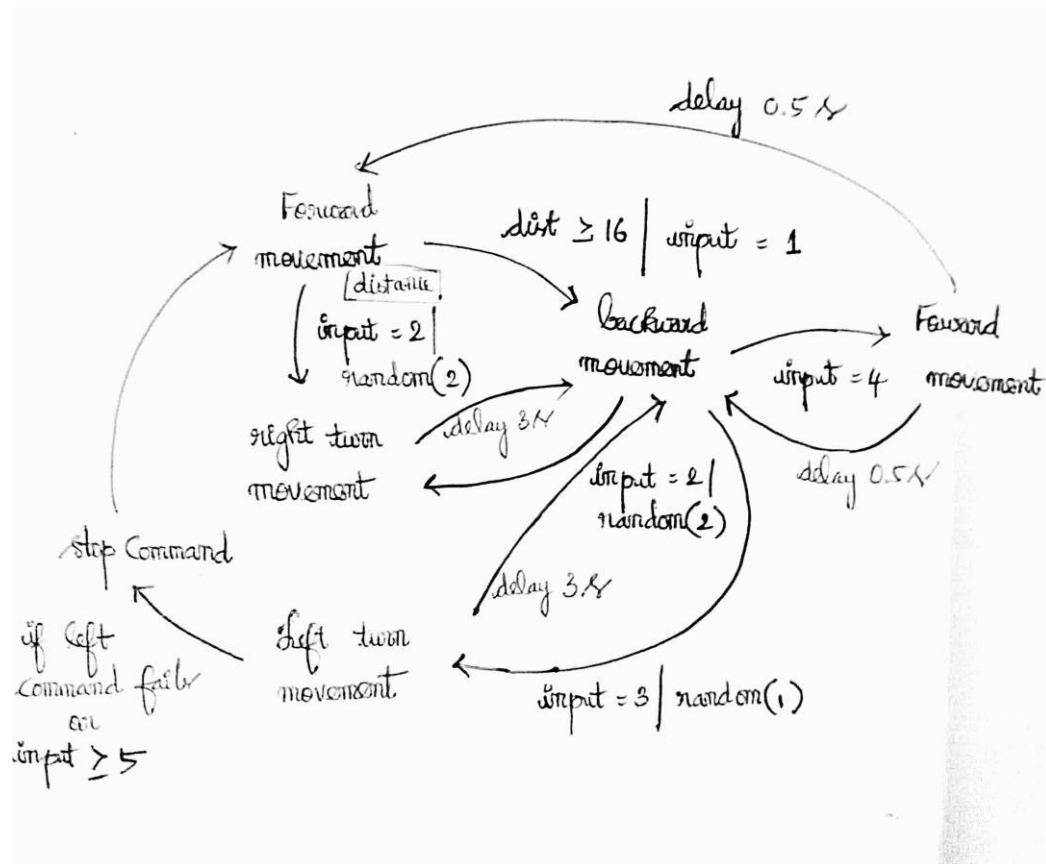 delay 0.5 s
Forward
movement
distance
dist ≥ 16 | input = 1
input = 2 |
random(2)
backward
movement
Foward
movement
input = 4
delay 0.5 s
right turn
movement
delay 3 s
input = 2 |
random(2)
stop Command
delay 3 s
if left
command fails
or
input ≥ 5
Left turn
movement
input = 3 | random(1)